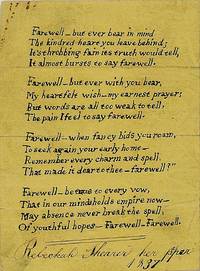 Farewell—but ever bear in mind
The kindred heart you leave behind;
It's throbbing fain its truth would tell,
It almost bursts to say farewell.
Farewell—but ever with you bear,
My heartfelt wish—my earnest prayer;
But words are all too weak to tell,
The pain I feel to say farewell.
Farewell—when fancy bids you roam,
To seek again your early home—
Remember every charm and spell,
That made it dear to thee—farewell?"
Farewell—be true to every vow,
That in our minds holds empire now—
May absence never break the spell,
Of youthful hopes—Farewell—Farewell.
Rebeckah Shearer her
1837